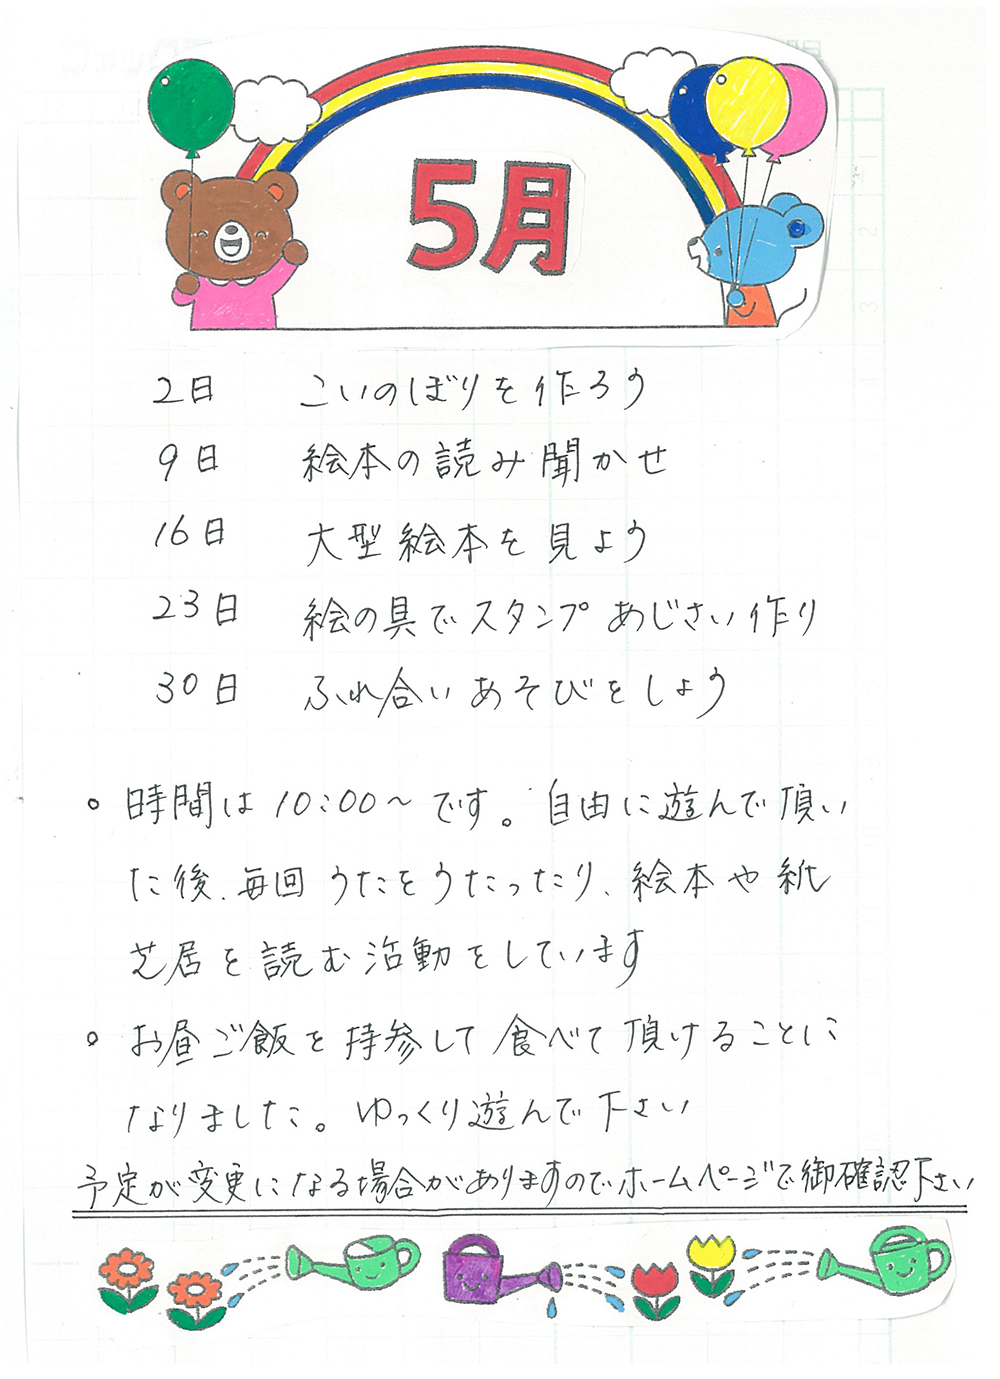 5月
2日 こいのぼりを作ろう
9日 絵本の読み聞かせ
16日 大型絵本を見よう
23日 絵の具でスタンプ あじさい作り
30日 ふれ合いあそびをしよう
。時間は10:00~です。自由に遊んで頂い
た後、毎回うたをうたったり、絵本や紙
芝居を読む活動をしています
。お昼ご飯を持参して食べて頂けることに
なりました。ゆっくり遊んで下さい
予定が変更になる場合がありますのでホームページで御確認下さい